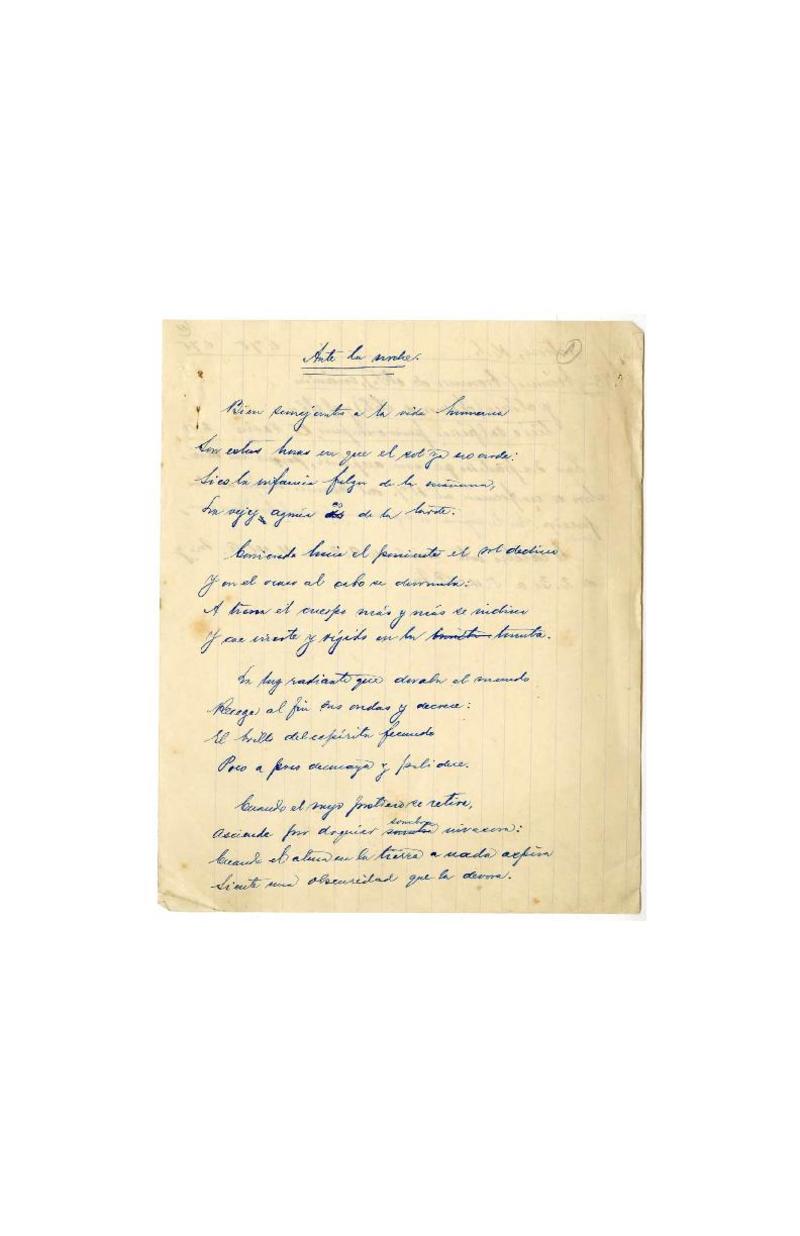 1
Ante la noche.
Bien semejantes a la vida humana
Son estas horas en que el sol ya no arde:
Si es la infancia fulgor de la mañana,
La vejez es agonía de la tarde.
hacia el poniente el sol declina
Y en el ocaso al cabo se derrumba:
A tierra el cuerpo más y más se inclina
Y cae inerte y rígido en la tumba.
La luz radiante que doraba el mundo
Recoge al fin sus ondas y decrece:
El brillo del espíritu fecundo
Poco a poco desmaya y palidece.
Cuando el rayo postrero se retira,
Asciende por doquier sombra invasora:
Cuando el alma en la tierra a nada aspira
Siente una obscuridad que la devora.